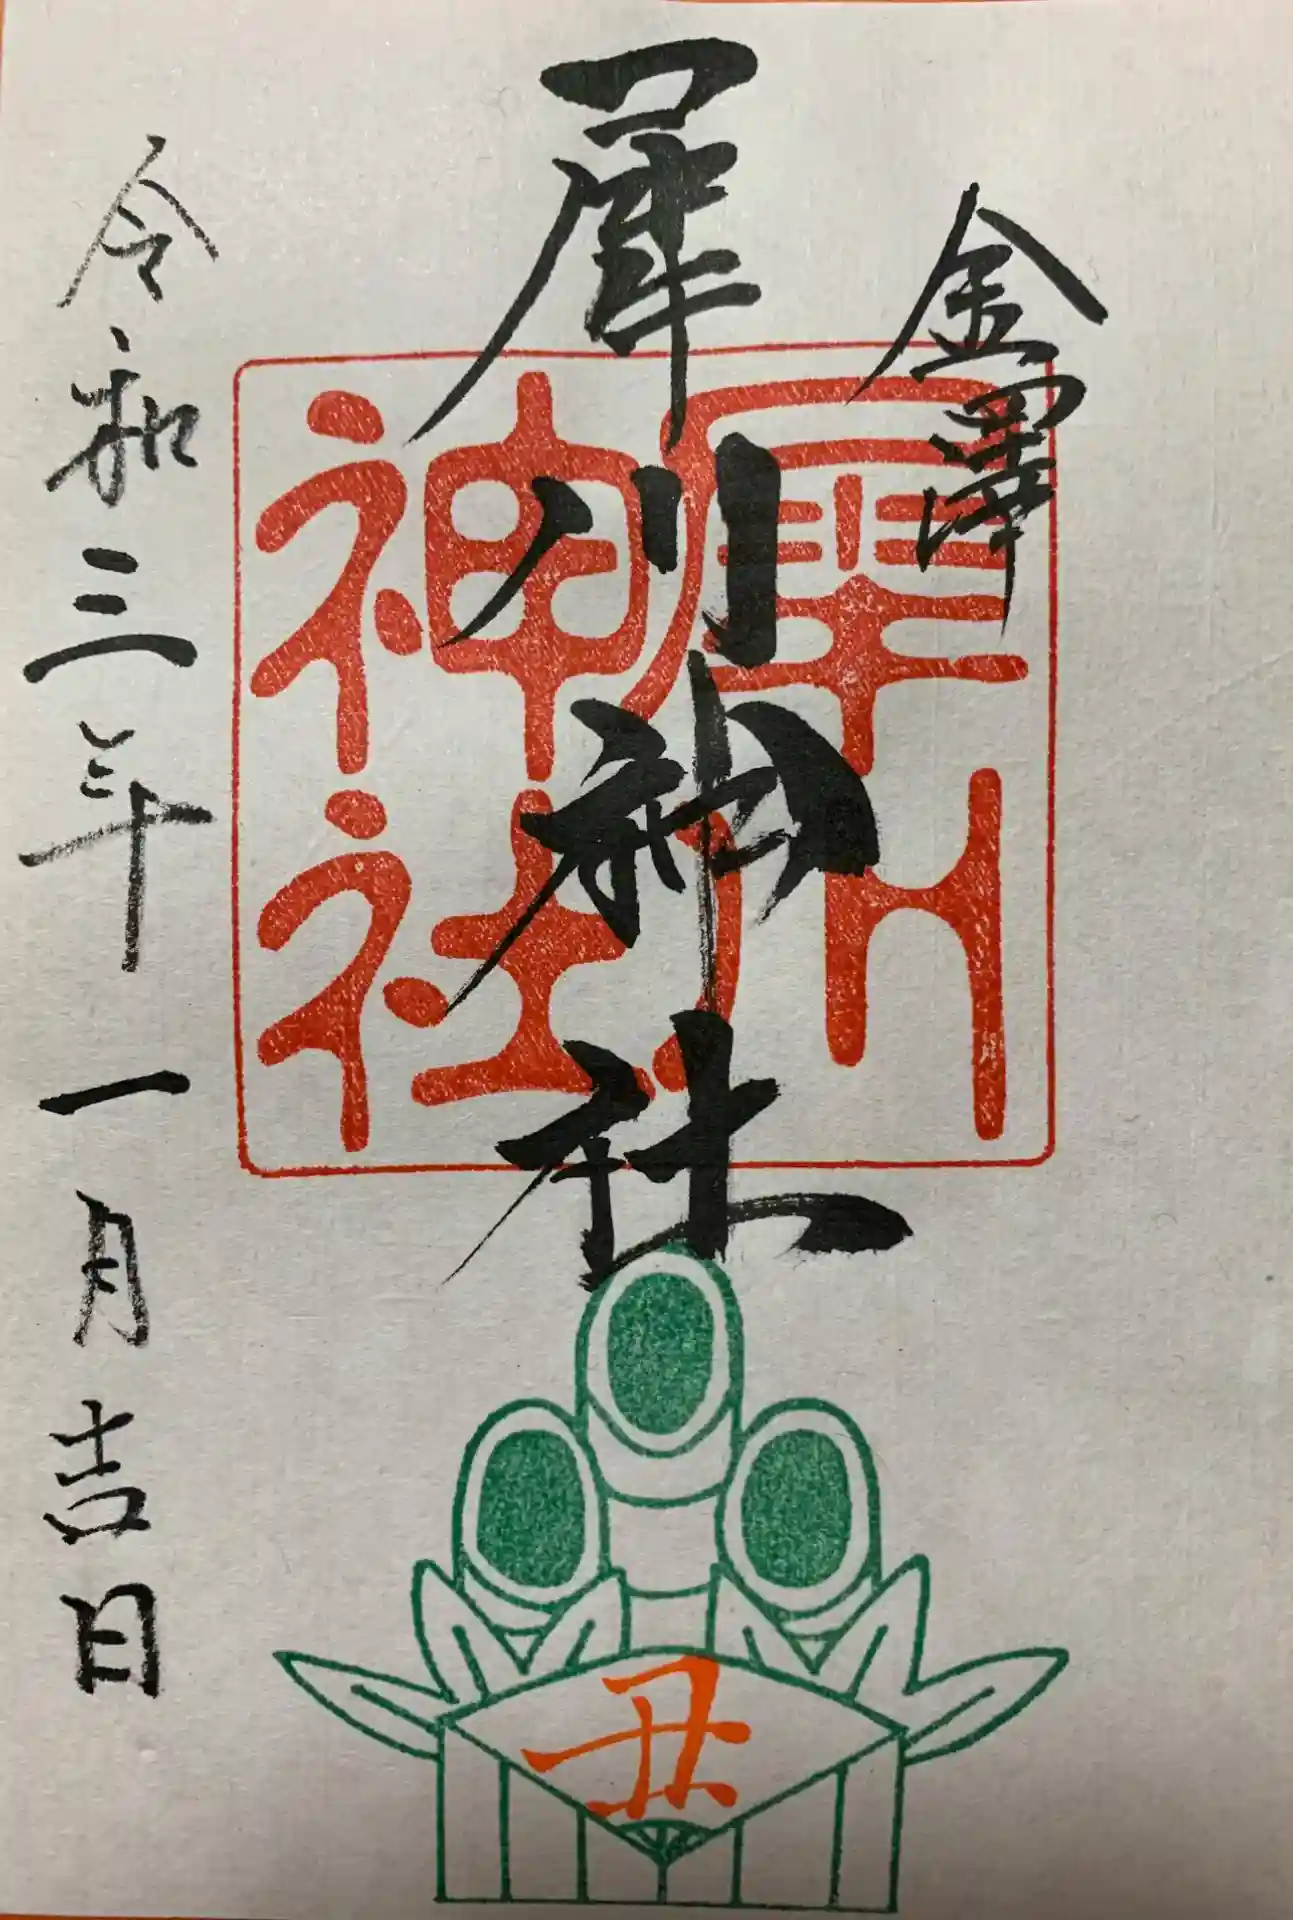 金澤
犀川神社
犀川
神社
令和三年一月吉日
丑